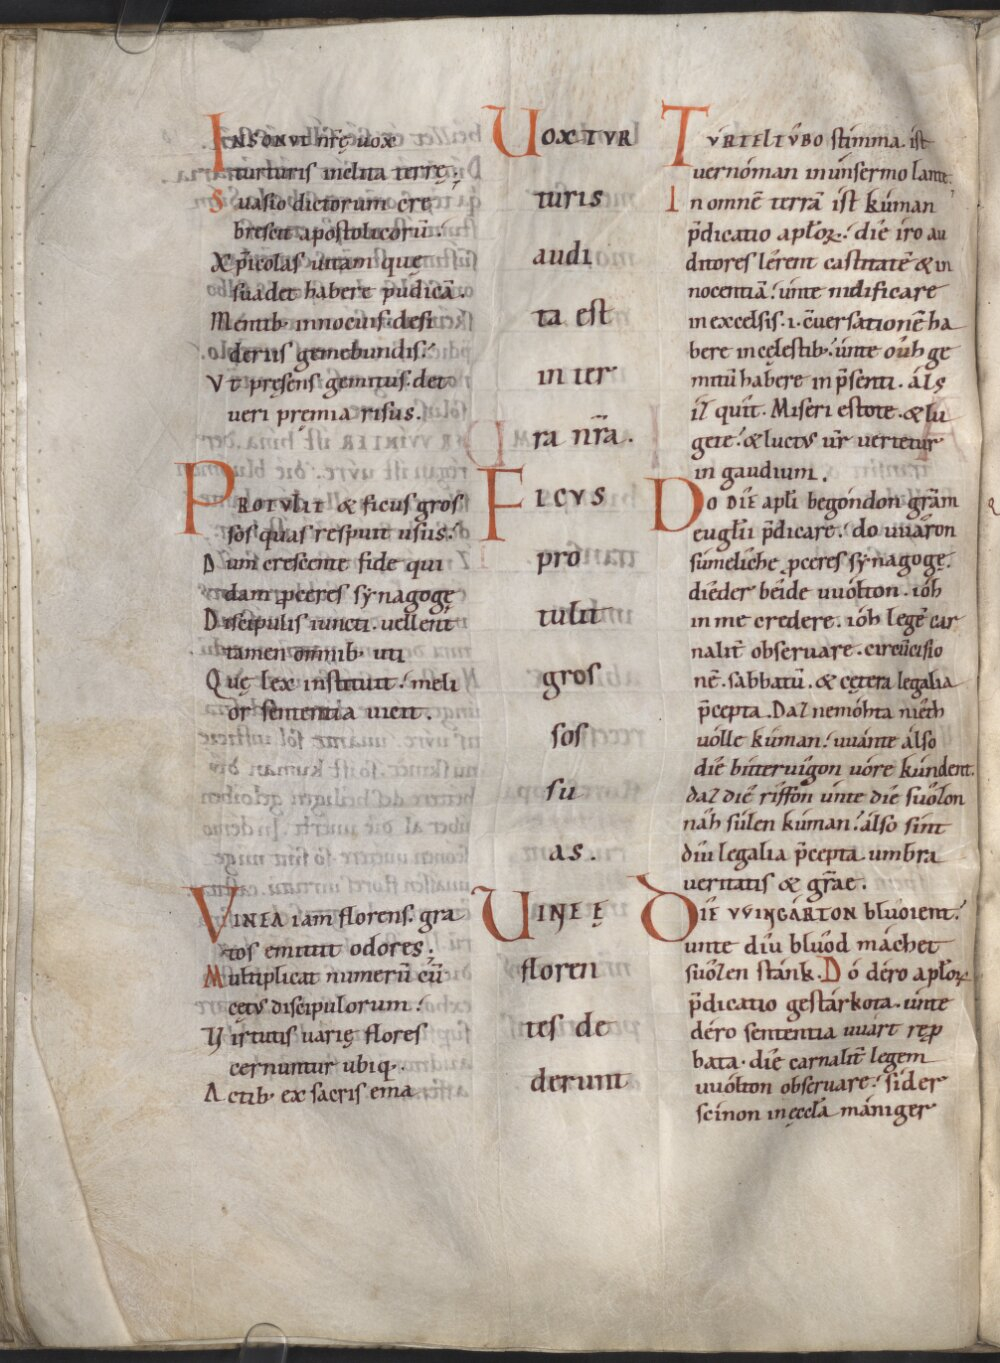 INSONUIT nr̄ę uox
turturis inclita terrę;
Suasio dictorum cre
brescit apostolicorū.
Xp̄icolas uitam quę
suadet habere pudicā.
Mentib· innocuis· desi
deriis gemebundis.
Vt presens gemitus· det
ueri premia risus.
PROTULIT & ficus gros
sos quas respuit usus.
Dum crescente fide qui
dam proceres synagogę
Discipulis iuncti· uellent
tamen omnib· uti
Quę lex instituit· meli
or sententia uicit.
VINEA iam florens· gra
tos emittit odores;
Multiplicat numerū cū
cetus discipulorum.
Virtutis uarię flores
cernuntur ubiq·
Actib· ex sacris ema
UOX TUR
turis
audi
ta est
in ter
ra nr̄a.
FICUS
pro
tulit
gros
sos
su
as.
UINEĘ
floren
tes de
derunt
TURTELTÚBO stimma· ist
uernóman in únsermo lante.
In omnē terrā ist kúman
p̄dicatio apłoꝝ· díe íro au
ditores lêrent castitatē & in
nocentiā· únte nidificare
in excelsis· .i. c̄uersationē ha
bere in cęlestib· únte oûh ge
mitū habere in p̄senti· áls
iz quît· Miseri estote· & lu
gete· & luctus ur̄ uertetur
in gaudium.
DO DÍE apłi begóndon gr̄am
euglii p̄dicare· do uuâron
súmelîche proceres synagogę·
díeder béide uuólton· ióh
in me credere· ióh legē car
nalit̄ obseruare· circūcisio
nē· sabbatū· & cętera legalia
p̄cepta. Daz nemóhta níeth
uólle kúman· uuánte álso
díe bittteruígon uóre kúndent
daz díe ríffon únte díe suôzon
nâh súlen kúman· álso sint
díu legalia p̄cepta· umbra
ueritatis & gr̄ae.
DÍE VVÍNGÁRTON blûoient·
unte díu blûod máchet
suôzen stánk. Dó déro apłoꝝ
p̄dicatio gestárkota· únte
déro sententia uuárt rep̄
bata· díe carnalit̄ legem
uuólton obseruare· síder
scínon in ęccła mániger